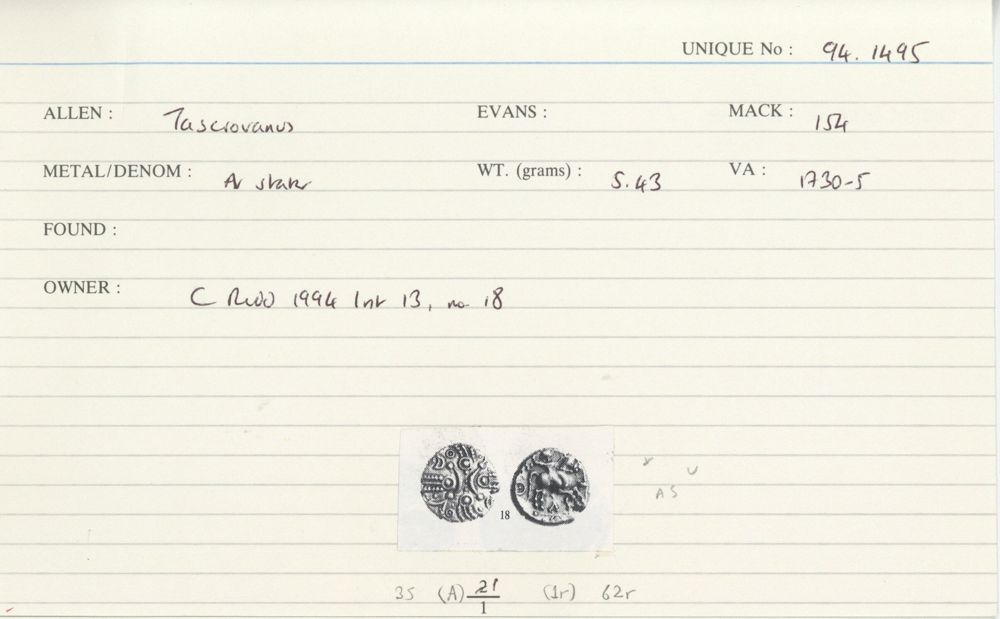 UNIQUE No : 94. 1495
ALLEN : Tasciovanus EVANS : MACK : 154
METAL/DENOM : AV stater WT. (grams) : 5.43 VA : 1730-5
FOUND :
OWNER : C Rudd 1994 list 13, no 18
18
V U
A S
35 (A) 21 (1r) 62r
1